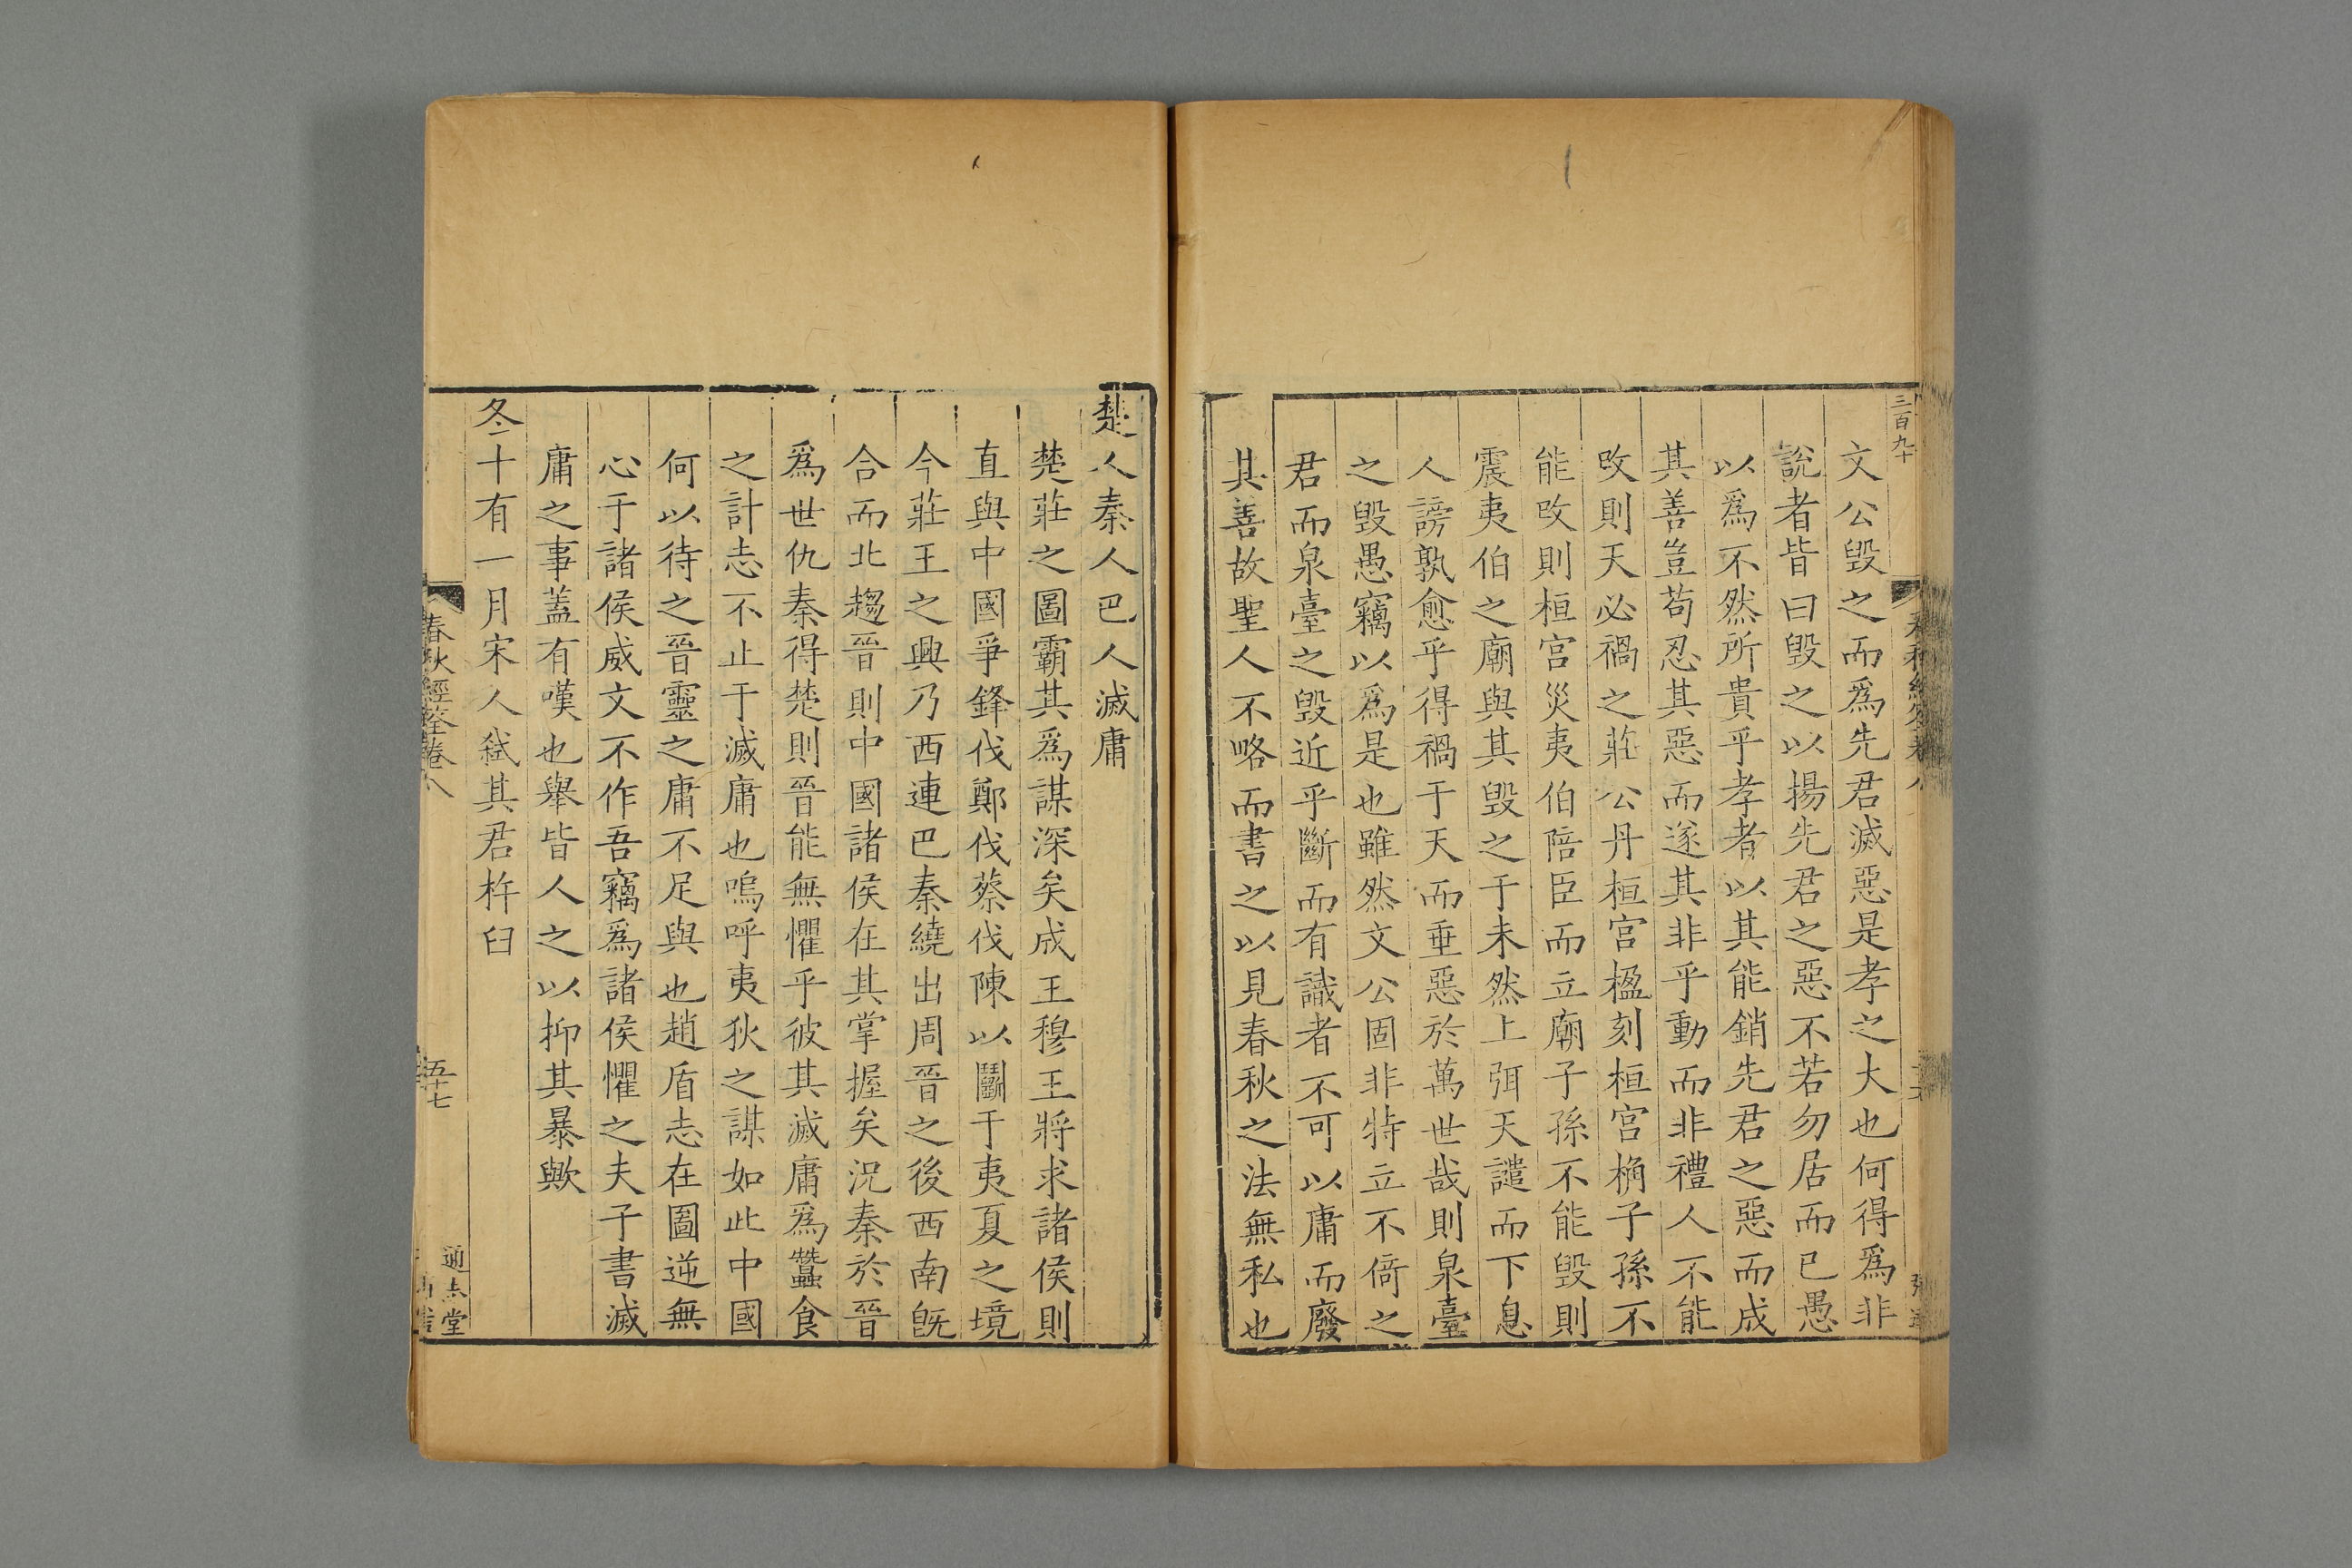 三百九十
文公毀之而爲先君滅惡是孝之大也何得爲非
說者皆曰毀之以揚先君之惡不若勿居而已愚
以爲不然所貴乎孝者以其能銷先君之惡而成
其善豈苟忍其惡而遂其非乎動而非禮人不能
改則天必禍之莊公丹桓宮楹刻桓宮桷子孫不
能改則桓宮災夷伯陪臣而立廟子孫不能毀則
震夷伯之廟與其毀之于未然上弭天譴而下息
人謗孰愈乎得禍于天而垂惡於萬世哉則泉臺
之毀愚竊以爲是也雖然文公固非特立不倚之
君而泉臺之毀近乎斷而有識者不可以庸而廢
其善故聖人不略而書之以見春秋之法無私也
楚人秦人巴人滅庸
楚莊之圖霸其爲謀深矣成王穆王將求諸侯則
直與中國爭鋒伐鄭伐蔡伐陳以鬭于夷夏之境
今莊王之興乃西連巴秦繞出周晉之後西南旣
合而北趨晉則中國諸侯在其掌握矣況秦於晉
爲世仇秦得楚則晉能無懼乎彼其滅庸爲蠶食
之計志不止于滅庸也嗚呼夷狄之謀如此中國
何以待之晉靈之庸不足與也趙盾志在圖逆無
心于諸侯威文不作吾竊爲諸侯懼之夫子書滅
庸之事蓋有嘆也舉皆人之以抑其暴歟
冬十有一月宋人弒其君杵臼
春秋經筌卷八
五十七
通志堂